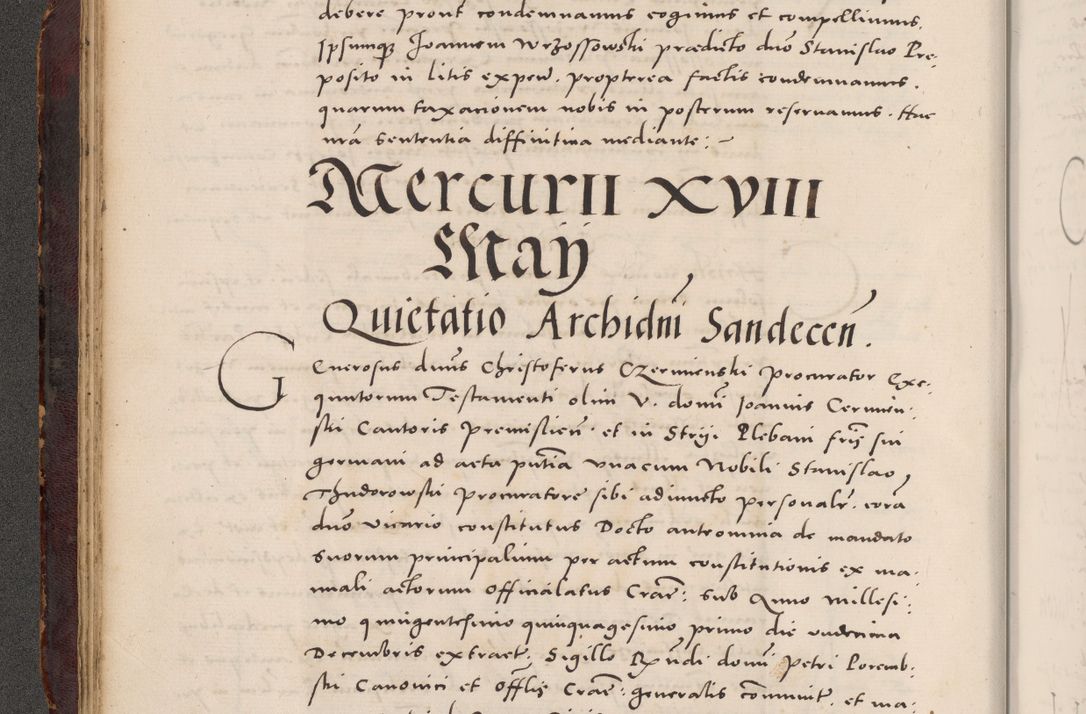 debere prout condemnamus cogimus et compellimus.
Ipsumq Joannem Wrzossowski prædicto dno Stanislao Pre-
posito in litis expen. propterea factis condemnamus.
quarum taxacionem nobis in posterum reservamus. Hac
nrã sententia diffinitiva mediante: –
Mercurii XVIII
Maij
Quietatio Archidni Sandecen.
Generosus dnus Christoferus Czerminski Procurator Exe-
quutorum Testamenti olim V. domi Joannis Cermin-
ski Cantoris Premislien. et in Strÿi Plebani fris sui
germani ad acta pntia unacum Nobili Stanislao
Thudorowski Procuratore sibi adiuncto personalr. corã
dno vicario constitutus Docto antromina de mandato
suorum principalium per actum constitutionis ex ma-
nuali actorum Officialatus Crac: sub Anno millesi-
mo quingentesimo quinquagesimo primo die undecima
Decembris extract. Sigillo Rndi domi Petri Poremb-
ski Canonici et Offlis Crac: generalis communit. et ma-